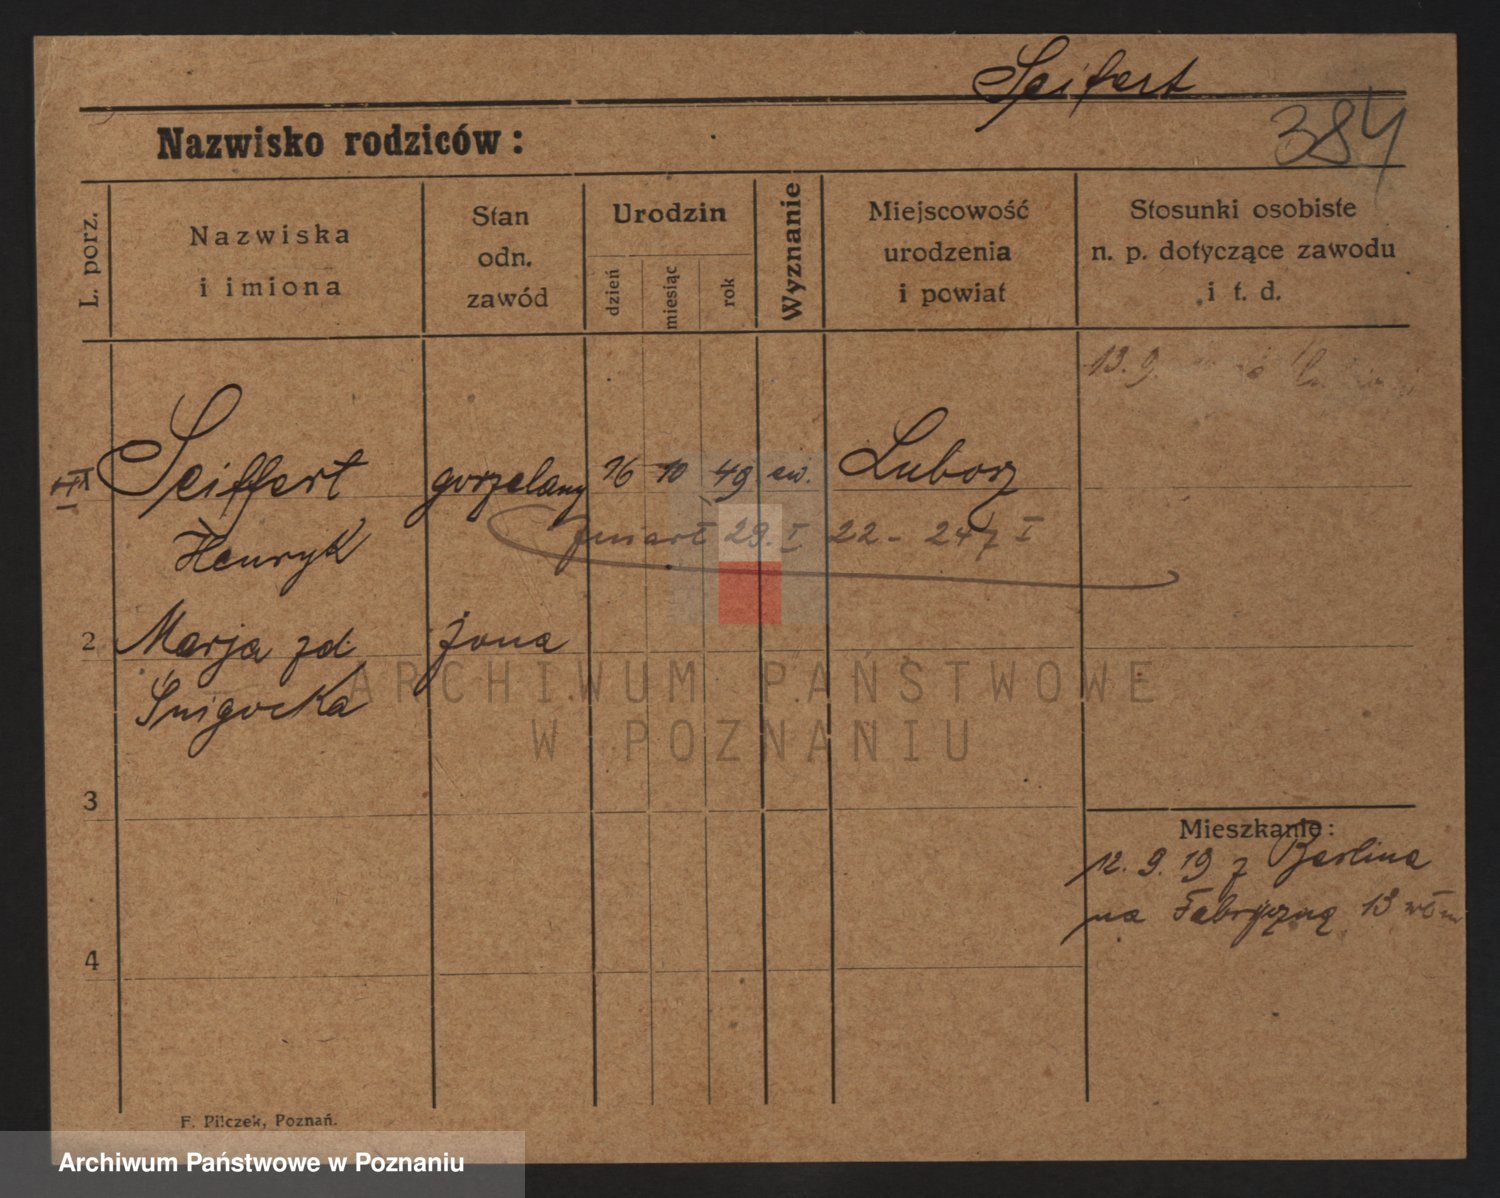 Seifert
384
Nazwisko rodziców:
L. porz.
Nazwiska
i imiona
Stan
odn.
zawód
Urodzin
dzień
miesiąc
rok
Wyznanie
Miejscowość
urodzenia
i powiat
Stosunki osobiste
n. p. dotyczące zawodu
i t. d.
13. 9.
Seiffert gorzelany 16 10 49 ew. Luborz
Henryk
Zmarł 29. I 22 - 247 I
2 Marja zd żona
Śnigocka
ARCHIWUM PAŃSTWOWE
W POZNANIU
3
Mieszkanie:
12. 9. 19 z Berlina
na Fabryczną 13
4
F. Pilczek, Poznań.
Archiwum Państwowe w Poznaniu